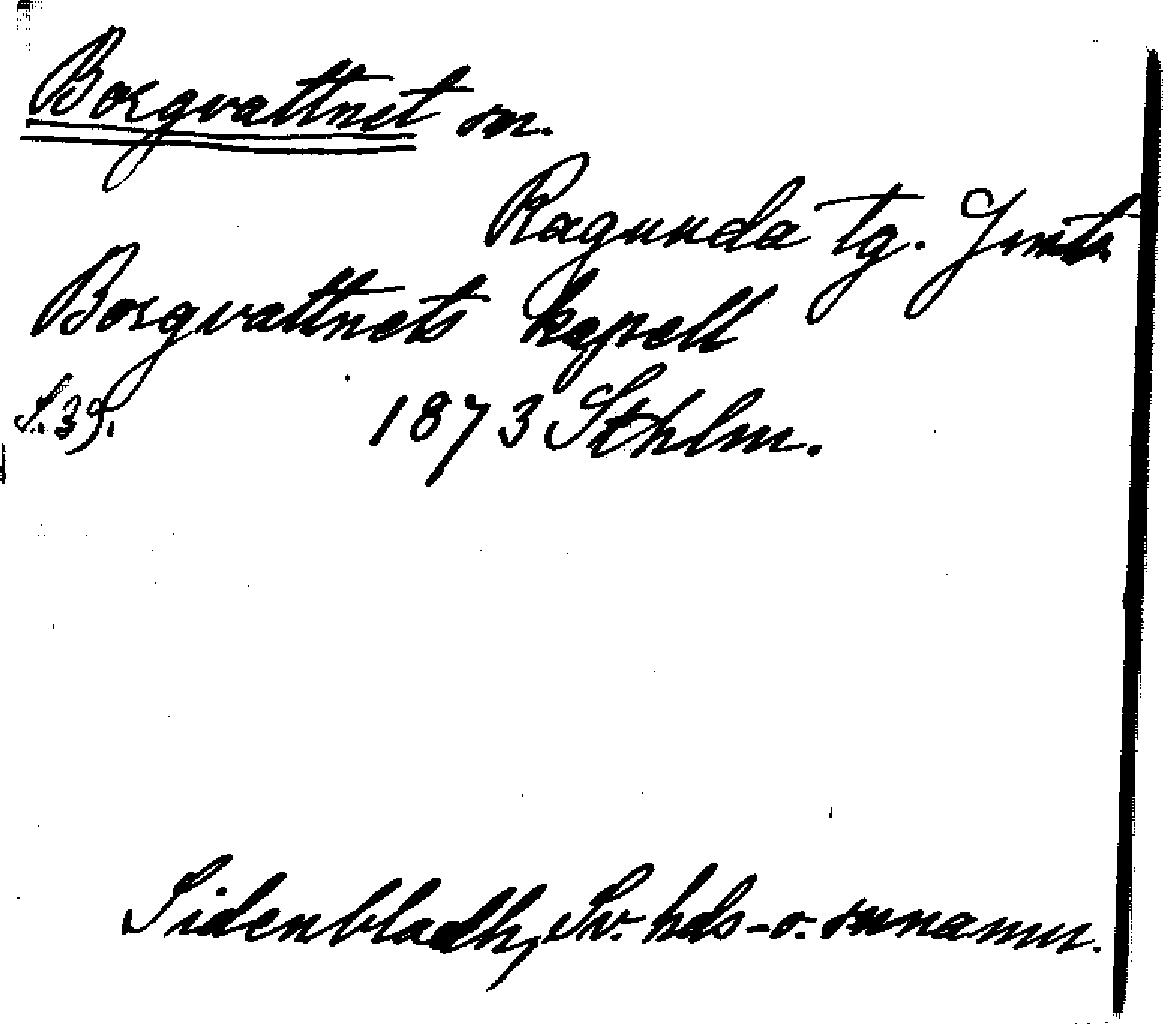 Borgvattnet sn.
Ragunda tg. Jmtl.
Borgvattnets kapell
S. 39. 1873 Sthlm.
Sidenbladh, Sv. hds- o. snnamn.